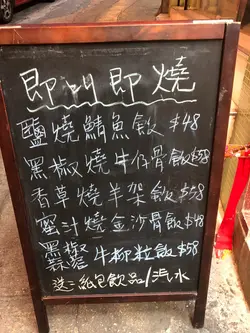 即叫即燒
鹽燒鯖魚飯 $48
黑椒燒牛仔骨飯 $58
香草燒羊架飯 $58
蜜汁燒金沙骨飯 $48
黑椒
蒜蓉 牛柳粒飯 $58
送:紙包飲品/汽水